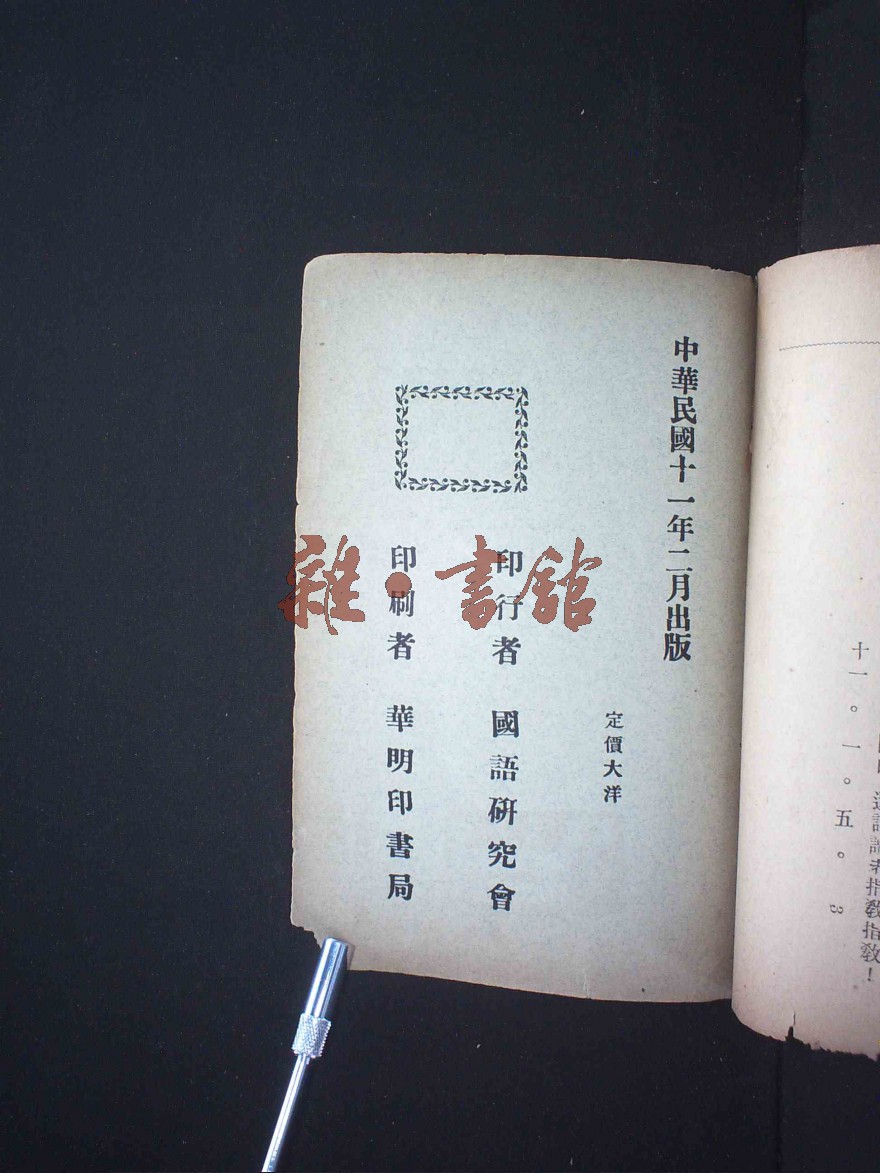 中華民國十一年二月出版
定價大洋
印行者 國語研究會
印刷者 華明印書局
雜·書館
指教指教！
十一。一。五。